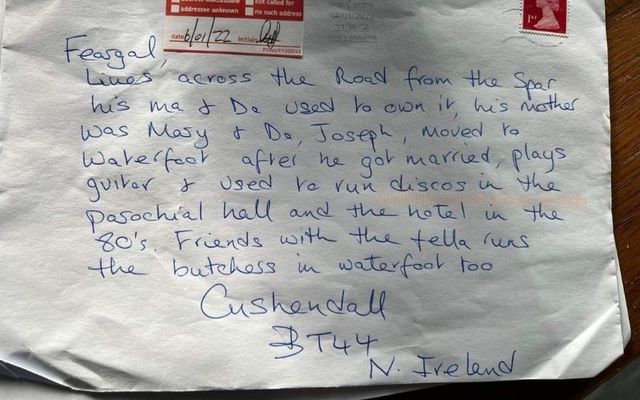 addressee unknown
not called for
no such address
date 6/01/22 Initials
1ST
Feargal,
Lives across the Road from the Spar
his ma & Da used to own it, his mother
was Mary & Da, Joseph, moved to
Waterfoot after he got married, plays
guitar & used to run discos in the
parochial hall and the hotel in the
80's. Friends with the fella runs
the butchers in waterfoot too
Cushendall
BT44
N. Ireland